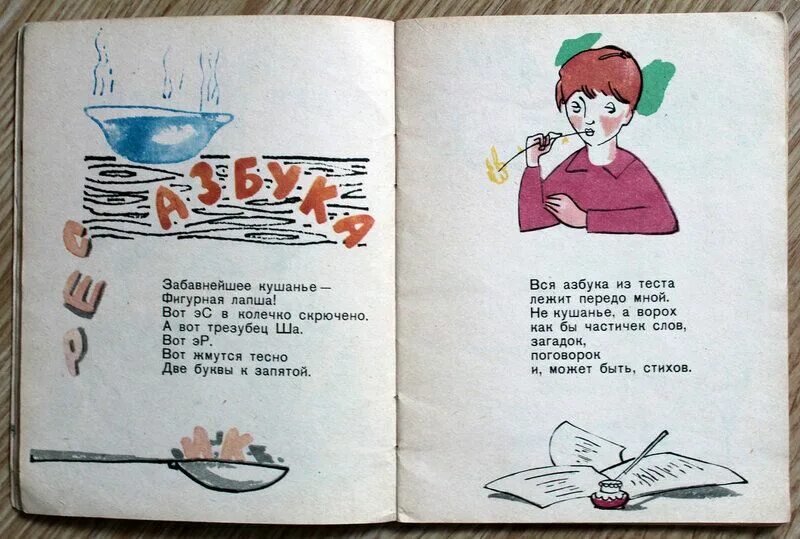 АЗБУКА
С
Е
Р
Забавнейшее кушанье —
Фигурная лапша!
Вот эС в колечко скрючено.
А вот трезубец Ша.
Вот эР.
Вот жмутся тесно
Две буквы к запятой.
К
Вся азбука из теста
лежит передо мной.
Не кушанье, а ворох
как бы частичек слов,
загадок,
поговорок
и, может быть, стихов.